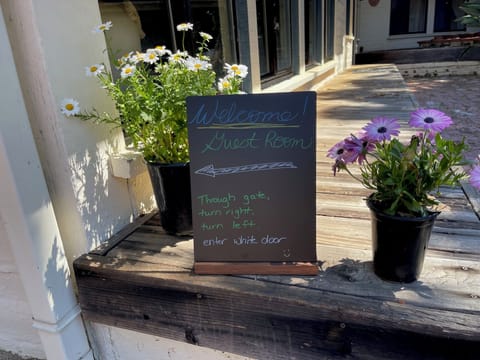 Welcome!
Guest Room
Through gate,
turn right,
turn left
enter white door